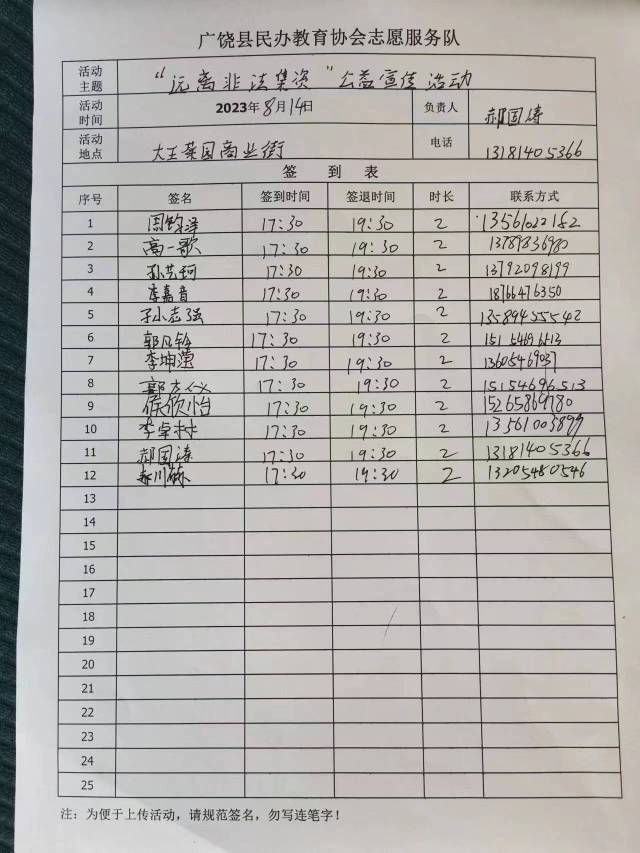 广饶县民办教育协会志愿服务队
活动主题 "远离非法集资"公益宣传活动
活动时间 2023年8月14日 负责人 郝国涛
活动地点 大王菜园商业街 电话 13181405366
签到表
序号 签名 签到时间 签退时间 时长 联系方式
1 周钧泽 17:30 19:30 2 13561022152
2 高一歌 17:30 19:30 2 13789836980
3 孙艺珂 17:30 19:30 2 13792098199
4 李嘉音 17:30 19:30 2 18766476350
5 孙志强 17:30 19:30 2 13589455542
6 17:30 19:30 2 15154696513
7 李坤滢 17:30 19:30 2 13605469037
8 17:30 19:30 2 15154696513
9 侯欣怡 17:30 19:30 2 15265869780
10 李卓树 17:30 19:30 2 13561003899
11 郝国涛 17:30 19:30 2 13181405366
12 17:30 19:30 2 13205480546
13
14
15
16
17
18
19
20
21
22
23
24
25
注：为便于上传活动，请规范签名，勿写连笔字！